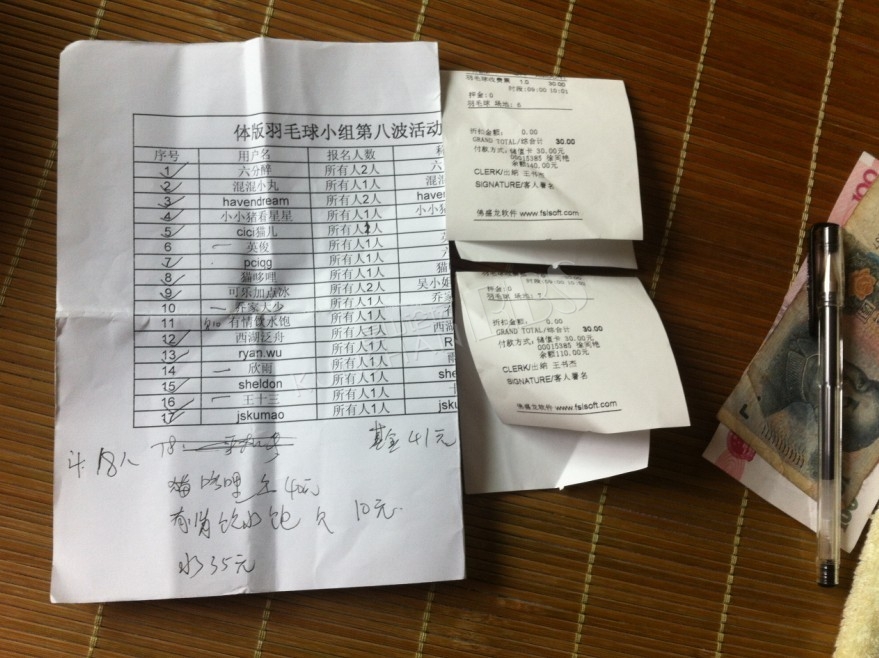 体版羽毛球小组第八波活动
序号 用户名 报名人数
1 六分醉 所有人2人 六
2 混混小丸 所有人1人 混混
3 havendream 所有人2人 haven
4 小小猪看星星 所有人1人 小小猪
5 cici猫儿 所有人1人
6 英俊 所有人1人
7 pciqg 所有人1人
8 猫哆哩 所有人1人 猫
9 可乐加点冰 所有人2人 吴小
10 乔家大少 所有人1人 乔家
11 有情饮水饱 所有人1人
12 西湖泛舟 所有人1人 西湖
13 ryan.wu 所有人1人 R
14 欣雨 所有人1人
15 sheldon 所有人1人
16 王十三 所有人1人
17 jskumao 所有人1人 jsku
基金41元
计18人 T8
猫哆哩 欠40元
有情饮水饱 欠 10元
水35元
羽毛球收费票 1.0 30.00
时段:09:00 10:01
押金:0
羽毛球 场地: 6
折扣金额: 0.00
GRAND TOTAL/综合计 30.00
付款方式: 储值卡 30.00元
00015385
余额140.00元
CLERK/出纳 王书杰
SIGNATURE/客人署名
佛盛龙软件 www.fsisoft.com
时段:09:00 10:01
押金:0
羽毛球 场地: 7
折扣金额: 0.00
GRAND TOTAL/综合计 30.00
付款方式: 储值卡 30.00元
00015385
余额110.00元
CLERK/出纳 王书杰
SIGNATURE/客人署名
佛盛龙软件 www.fsisoft.com
100